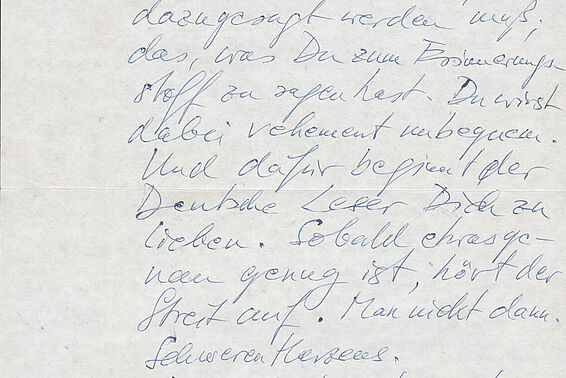 dazugesagt werden muß,
das, was Du zum Erinnerungs-
stoff zu sagen hast. Du wirst
dabei vehement unbequem.
Und dafür beginnt der
Deutsche Leser Dich zu
lieben. Sobald etwas ge-
nau genug ist, hört der
Streit auf. Man nickt dann.
Schweren Herzens.